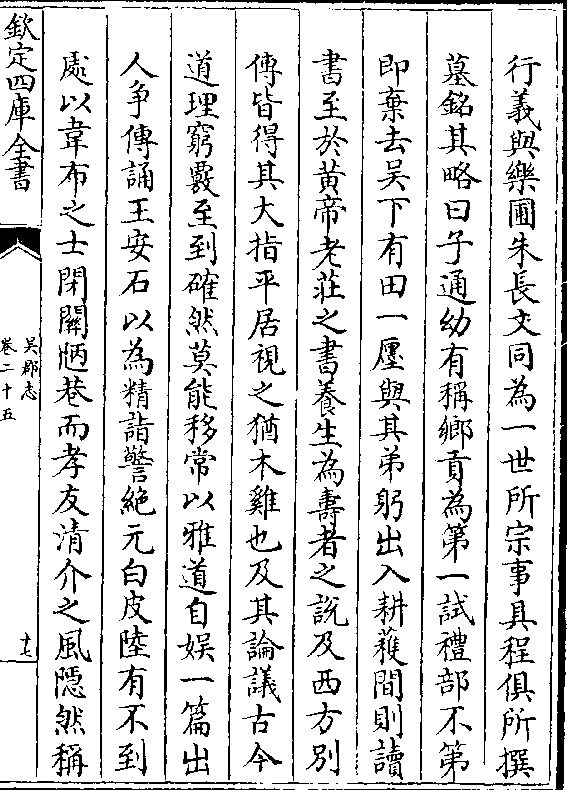 行義與樂圃朱長文同為一世所宗事具程俱所撰
墓銘其略曰子通幼有稱鄉貢為第一試禮部不第
即棄去吳下有田一廛與其弟躬出入耕穫間則讀
書至於黄帝老莊之書養生為壽者之說及西方别
傳皆得其大指平居視之猶木雞也及其論議古今
道理窮覈至到確然莫能移常以雅道自娱一篇出
人争傳誦王安石以為精詣警絶元白皮陸有不到
處以韋布之士閉關陋巷而孝友清介之風隠然稱
欽定四庫全書
吳郡志
卷二十五
十七